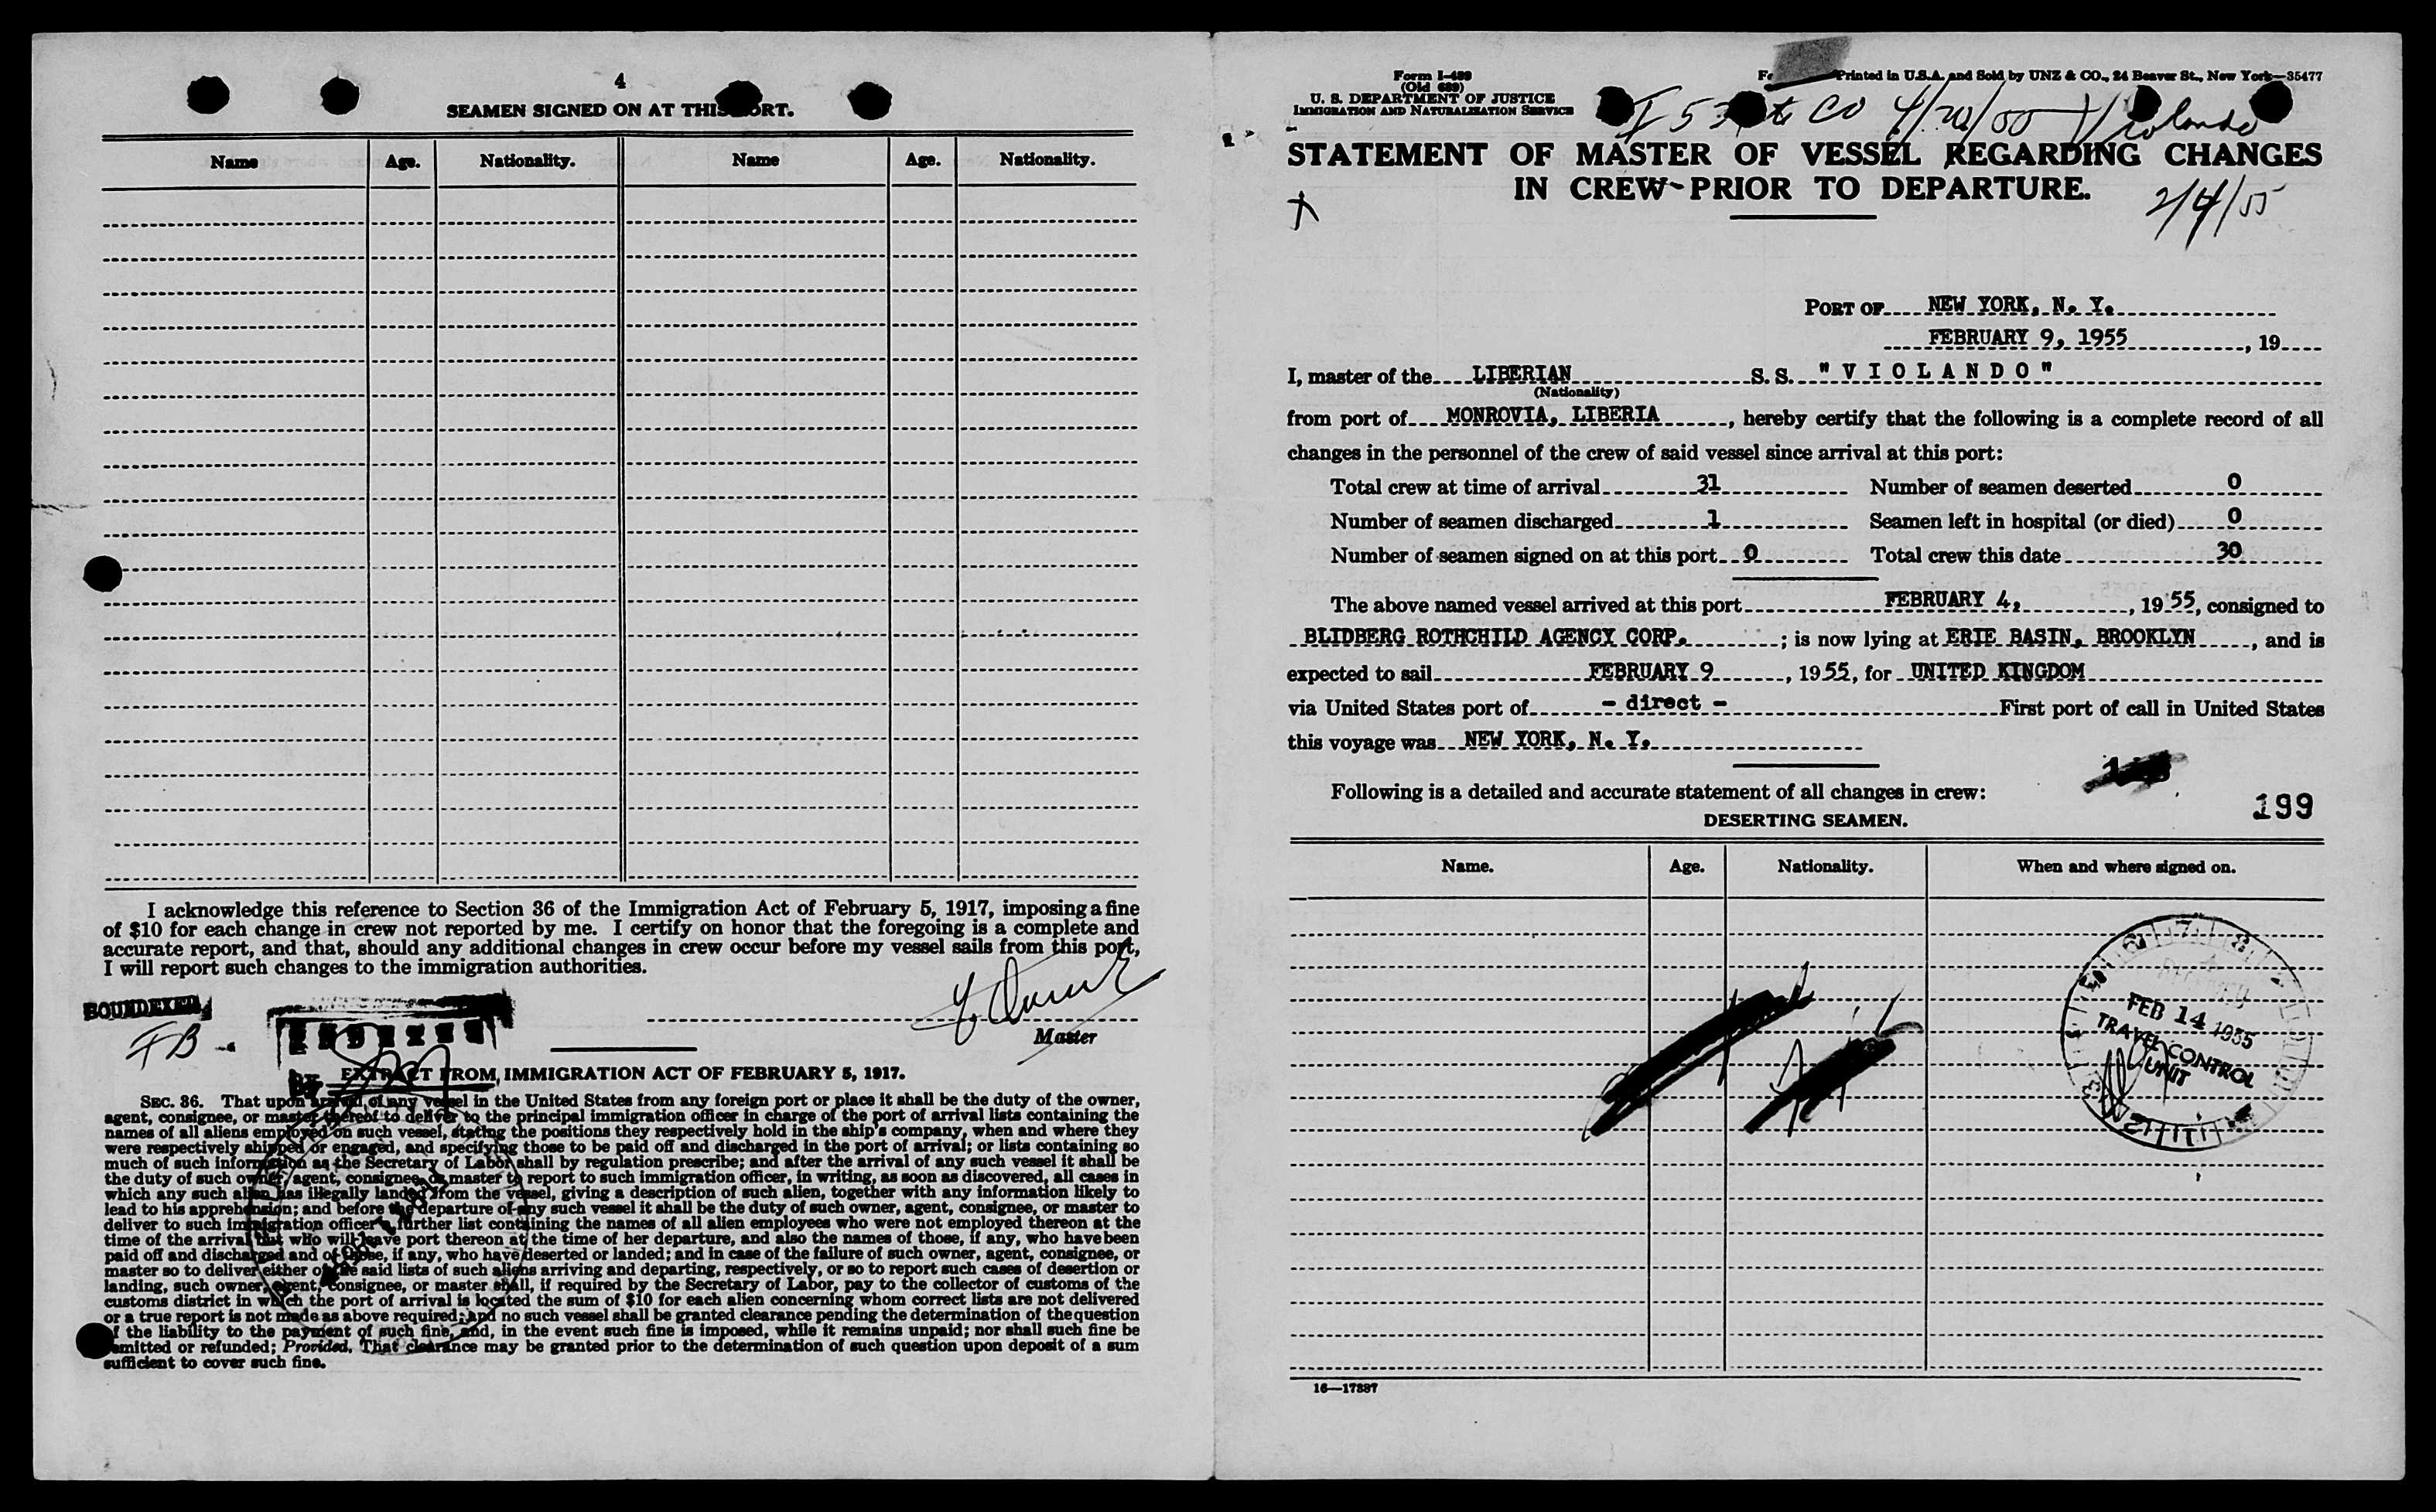 4
SEAMEN SIGNED ON AT THIS PORT.
Name Age. Nationality. Name Age. Nationality.
I acknowledge this reference to Section 36 of the Immigration Act of February 5, 1917, imposing a fine
of $10 for each change in crew not reported by me. I certify on honor that the foregoing is a complete and
accurate report, and that, should any additional changes in crew occur before my vessel sails from this port,
I will report such changes to the immigration authorities.
FB
Master
EXTRACT FROM IMMIGRATION ACT OF FEBRUARY 5, 1917.
SEC. 36. That upon arrival of any vessel in the United States from any foreign port or place it shall be the duty of the owner,
agent, consignee, or master thereof to deliver to the principal immigration officer in charge of the port of arrival lists containing the
names of all aliens employed on such vessel, stating the positions they respectively hold in the ship's company, when and where they
were respectively shipped or engaged, and specifying those to be paid off and discharged in the port of arrival; or lists containing so
much of such information as the Secretary of Labor shall by regulation prescribe; and after the arrival of any such vessel it shall be
the duty of such owner, agent, consignee, or master to report to such immigration officer, in writing, as soon as discovered, all cases in
which any such alien has illegally landed from the vessel, giving a description of such alien, together with any information likely to
lead to his apprehension; and before the departure of any such vessel it shall be the duty of such owner, agent, consignee, or master to
deliver to such immigration officer a further list containing the names of all alien employees who were not employed thereon at the
time of the arrival but who will leave port thereon at the time of her departure, and also the names of those, if any, who have been
paid off and discharged and of those, if any, who have deserted or landed; and in case of the failure of such owner, agent, consignee, or
master so to deliver either of the said lists of such aliens arriving and departing, respectively, or so to report such cases of desertion or
landing, such owner, agent, consignee, or master shall, if required by the Secretary of Labor, pay to the collector of customs of the
customs district in which the port of arrival is located the sum of $10 for each alien concerning whom correct lists are not delivered
or a true report is not made as above required; and no such vessel shall be granted clearance pending the determination of the question
of the liability to the payment of such fine, and, in the event such fine is imposed, while it remains unpaid; nor shall such fine be
remitted or refunded; Provided, That clearance may be granted prior to the determination of such question upon deposit of a sum
sufficient to cover such fine.
Form I-489
(Old 689)
U. S. DEPARTMENT OF JUSTICE
IMMIGRATION AND NATURALIZATION SERVICE
Printed in U.S.A. and Sold by UNZ & CO., 24 Beaver St., New York—35477
Violando
STATEMENT OF MASTER OF VESSEL REGARDING CHANGES
IN CREW PRIOR TO DEPARTURE.
2/4/55
PORT OF NEW YORK, N. Y.
FEBRUARY 9, 1955, 19
I, master of the LIBERIAN S. S. "VIOLANDO"
(Nationality)
from port of MONROVIA, LIBERIA, hereby certify that the following is a complete record of all
changes in the personnel of the crew of said vessel since arrival at this port:
Total crew at time of arrival 31 Number of seamen deserted 0
Number of seamen discharged 1 Seamen left in hospital (or died) 0
Number of seamen signed on at this port 0 Total crew this date 30
The above named vessel arrived at this port FEBRUARY 4, , 1955, consigned to
BLIDBERG ROTHCHILD AGENCY CORP. ; is now lying at ERIE BASIN, BROOKLYN, and is
expected to sail FEBRUARY 9, 1955, for UNITED KINGDOM
via United States port of - direct - First port of call in United States
this voyage was NEW YORK, N. Y.
Following is a detailed and accurate statement of all changes in crew:
199
DESERTING SEAMEN.
Name. Age. Nationality. When and where signed on.
FEB 14 1955
TRAVEL CONTROL
UNIT
16—17887